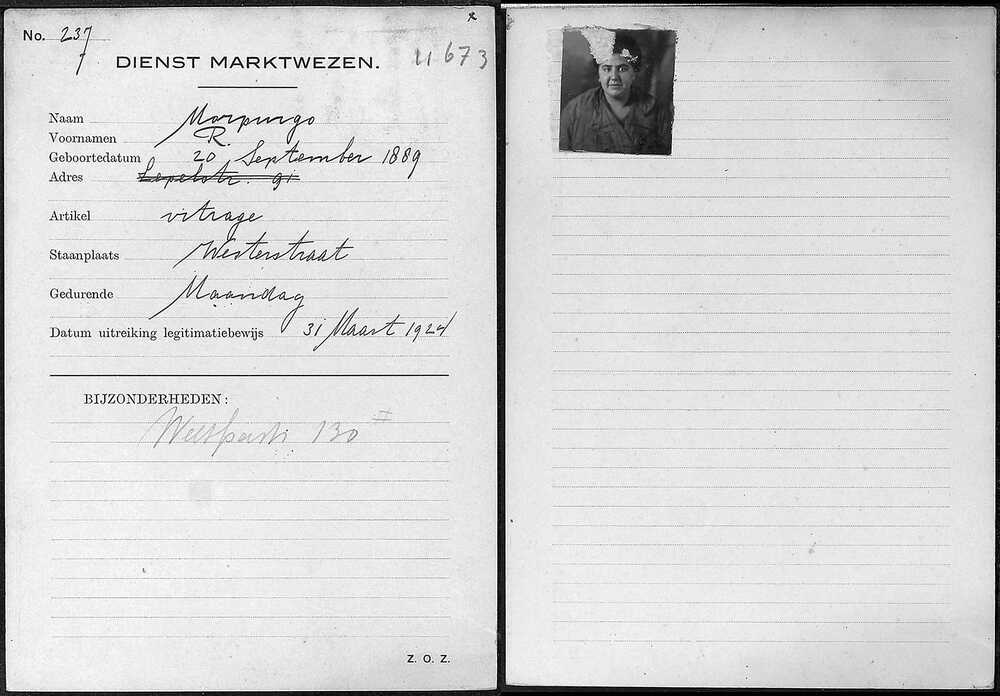 No. 237
11673
DIENST MARKTWEZEN.
Naam Morpurgo
Voornamen R.
Geboortedatum 20 September 1889
Adres Lepelstr. 91
Artikel vitrage
Staanplaats Westerstraat
Gedurende Maandag
Datum uitreiking legitimatiebewijs 31 Maart 1924
BIJZONDERHEDEN:
130 II
Z. O. Z.